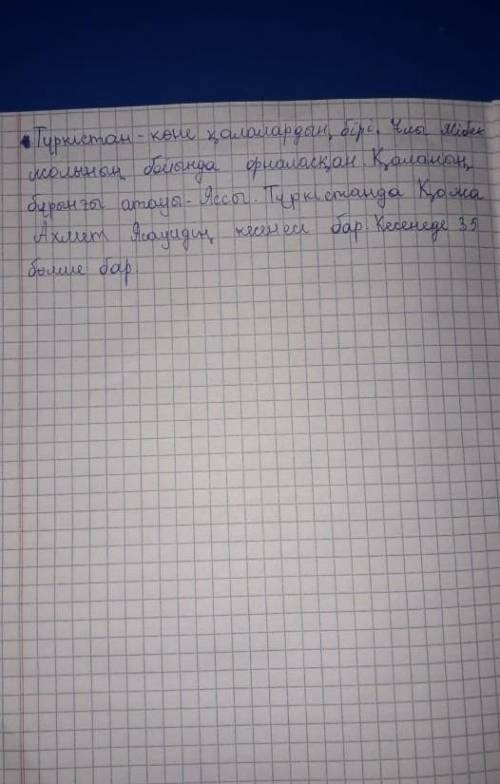 • Түркістан - көне қалалардың бірі. Ұлы Жібек
жолының бойында орналасқан. Қаланың
бұрынғы атауы - Яссы. Түркістанда Қожа
Ахмет Ясауидің кесенесі бар. Кесенеде 35
бөлме бар.